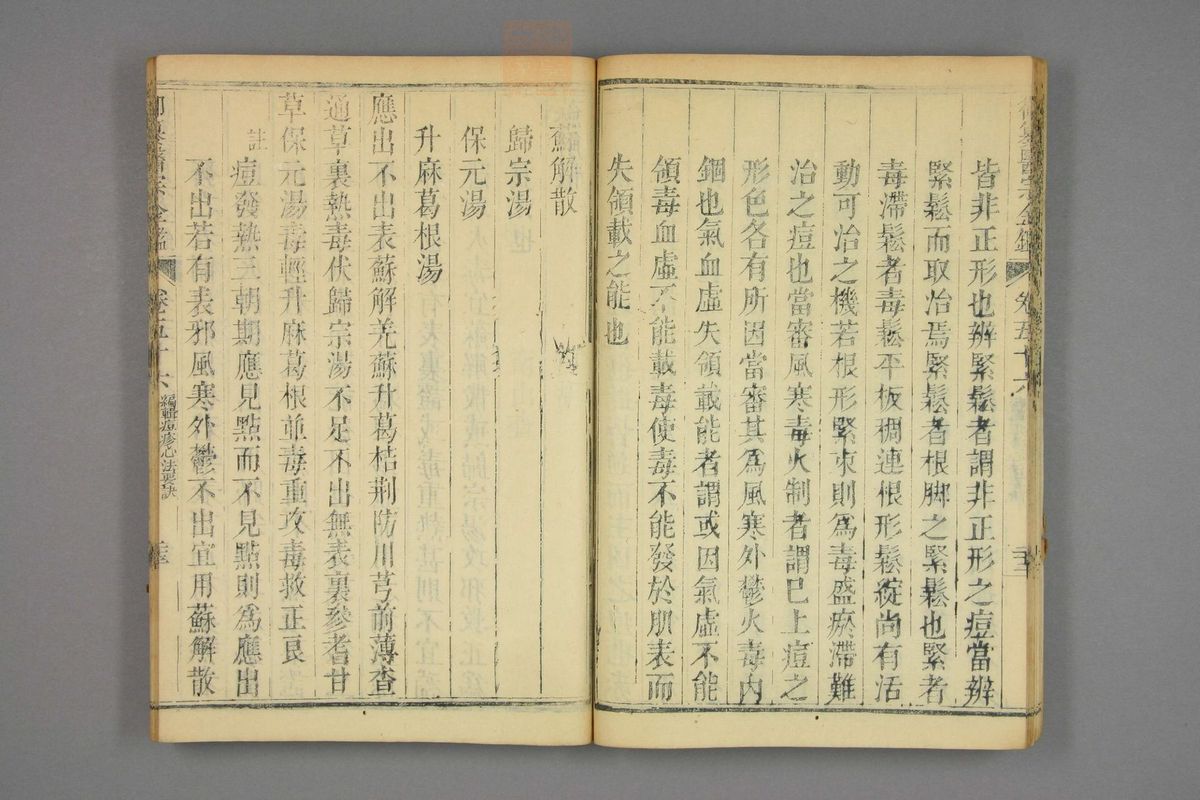 皆非正形也辨緊鬆者謂非正形之痘當辨
緊鬆而取治焉緊鬆者根脚之緊鬆也緊者
毒滯鬆者毒鬆平板稠連根形鬆綻尚有活
動可治之機若根形緊束則為毒盛瘀滯難
治之痘也當審風寒毒火制者謂已上痘之
形色各有所因當審其為風寒外鬱火毒內
錮也氣血虛失領載能者謂或因氣虛不能
領毒血虛不能載毒使毒不能發於肌表而
失領載之能也
卷五十六
蘇解散
歸宗湯
保元湯
升麻葛根湯
應出不出表蘇解羌蘇升葛桔荆防川芎前薄查
通草裏熱毒伏歸宗湯不足不出無表裏參耆甘
草保元湯毒輕升麻葛根並毒重攻毒救正良
註 痘發熱三朝期應見點而不見點則為應出
不出若有表邪風寒外鬱不出宜用蘇解散
御纂醫宗金鑑 卷五十六 編輯痘疹心法要訣